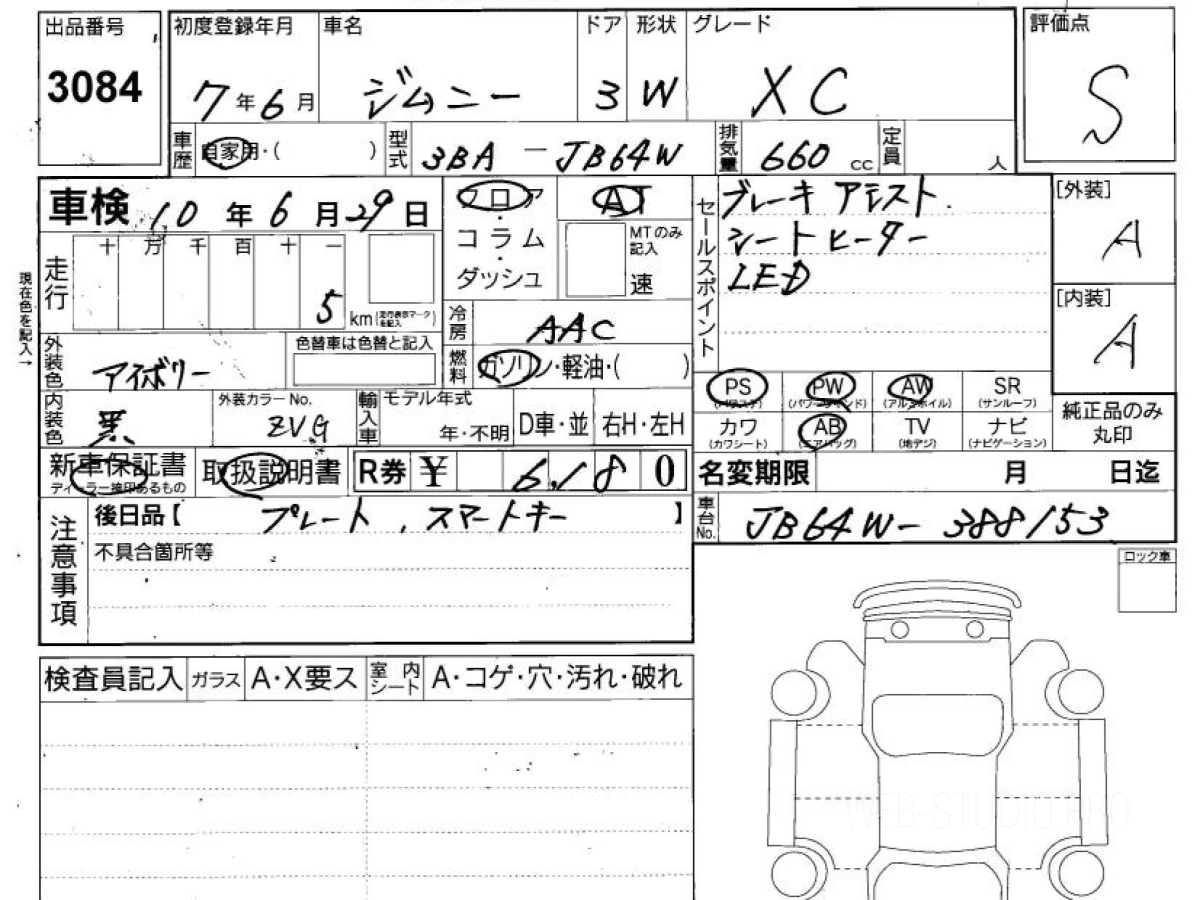 出品番号
3084
初度登録年月
7年6月
車名
ジムニー
ドア
3
形状
W
グレード
XC
評価点
S
車歴
自家用・( )
型式
3BA-JB64W
排気量
660 cc
定員
人
車検 10年6月29日
フロア
コラム
・
ダッシュ
AT
MTのみ
記入
速
セールスポイント
ブレーキ アシスト.
シートヒーター
LED
[外装]
A
[内装]
A
現在色を記入→
走行
十 万 千 百 十 一
5
km (走行表示マークを記入)
冷房
AAC
外装色
アイボリー
色替車は色替と記入
燃料
ガソリン・軽油・( )
内装色
黒
外装カラーNo.
ZVG
輸入車
モデル年式
年・不明
D車・並
右H・左H
PS
(パワステ)
PW
(パワーウインド)
AW
(アルミホイル)
SR
(サンルーフ)
カワ
(カワシート)
AB
(エアバッグ)
TV
(地デジ)
ナビ
(ナビゲーション)
純正品のみ
丸印
新車保証書
ディーラー捺印あるもの
取扱説明書
R券 ¥ 6,180
名変期限 月 日迄
注意事項
後日品【 プレート , スマートキー 】
不具合箇所等
車台No.
JB64W-388153
ロック車
検査員記入
ガラス
A・X要ス
室内シート
A・コゲ・穴・汚れ・破れ
WEB-STUDIO.PRO